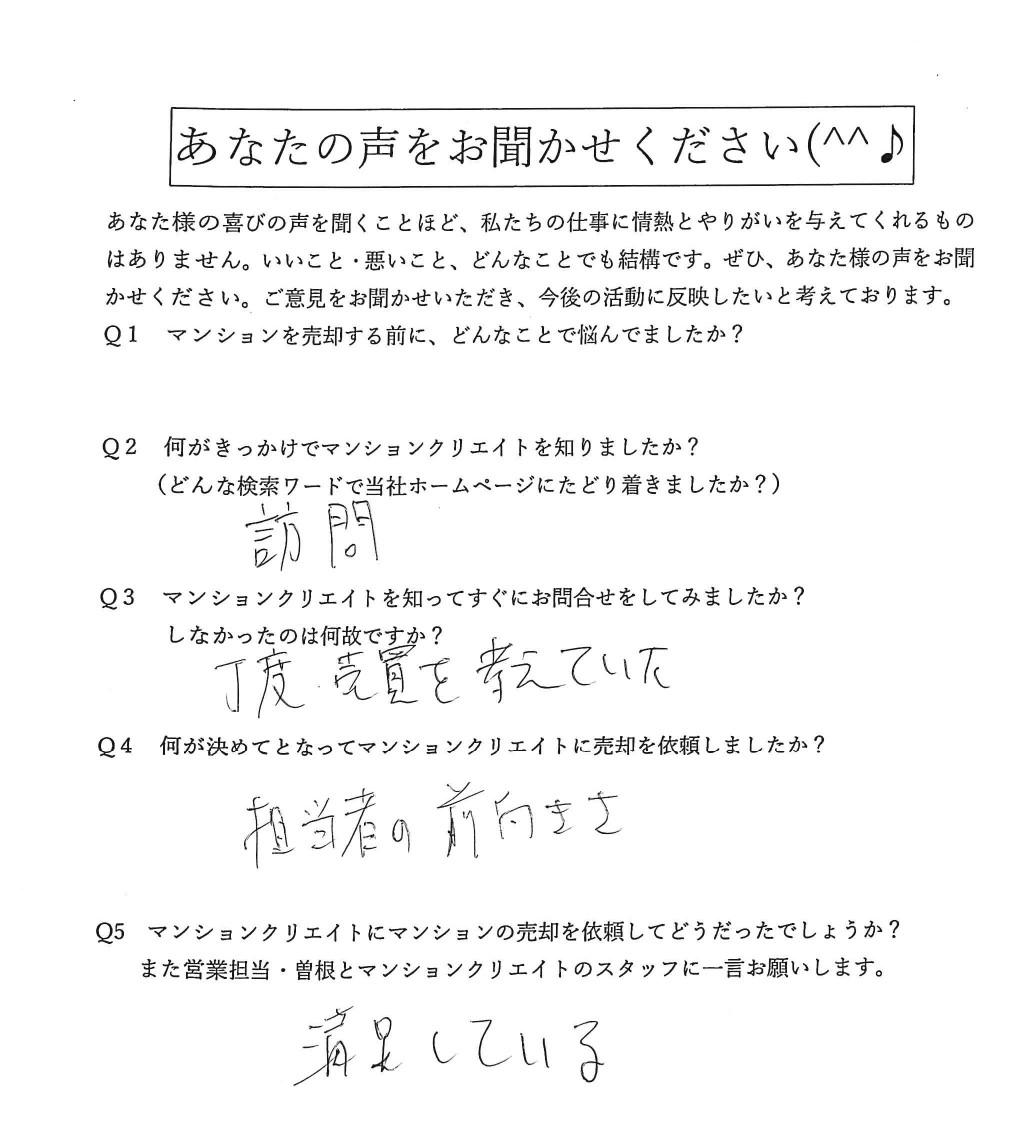 あなたの声をお聞かせください(^^♪
あなた様の喜びの声を聞くことほど、私たちの仕事に情熱とやりがいを与えてくれるもの
はありません。いいこと・悪いこと、どんなことでも結構です。ぜひ、あなた様の声をお聞
かせください。ご意見をお聞かせいただき、今後の活動に反映したいと考えております。
Q1 マンションを売却する前に、どんなことで悩んでましたか？
Q2 何がきっかけでマンションクリエイトを知りましたか？
（どんな検索ワードで当社ホームページにたどり着きましたか？）
訪問
Q3 マンションクリエイトを知ってすぐにお問合せをしてみましたか？
しなかったのは何故ですか？
丁度売買を考えていた
Q4 何が決めてとなってマンションクリエイトに売却を依頼しましたか？
担当者の前向きさ
Q5 マンションクリエイトにマンションの売却を依頼してどうだったでしょうか？
また営業担当・曽根とマンションクリエイトのスタッフに一言お願いします。
満足している